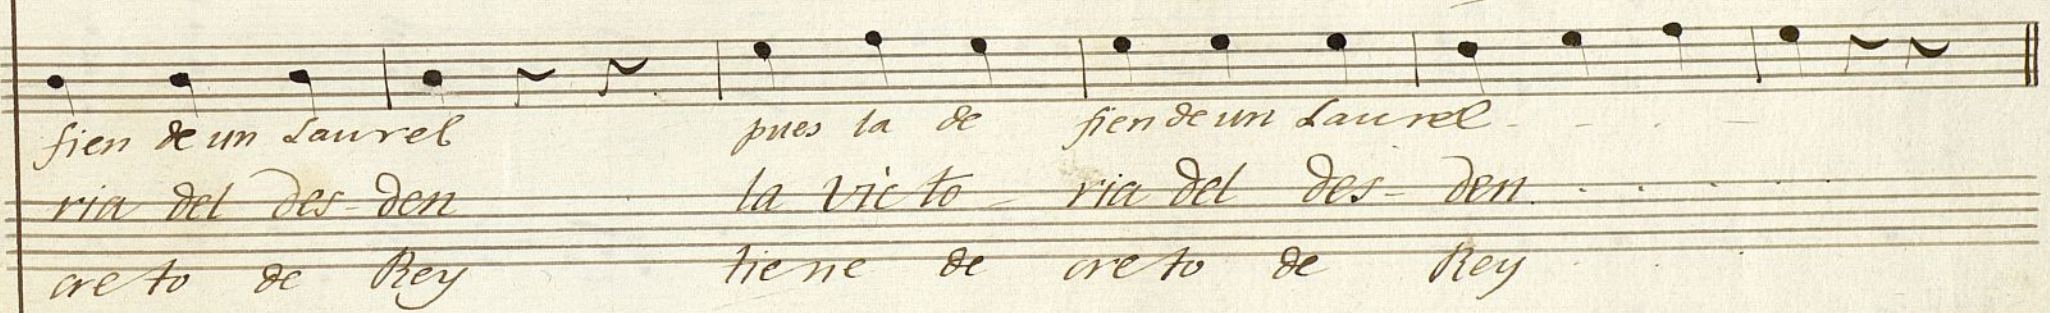 fien de un Laurel pues la de fien de un Laurel - - - -
ria del des-den la victo - ria del des-den. . . . . .
creto de Rey tiene de creto de Rey . . .